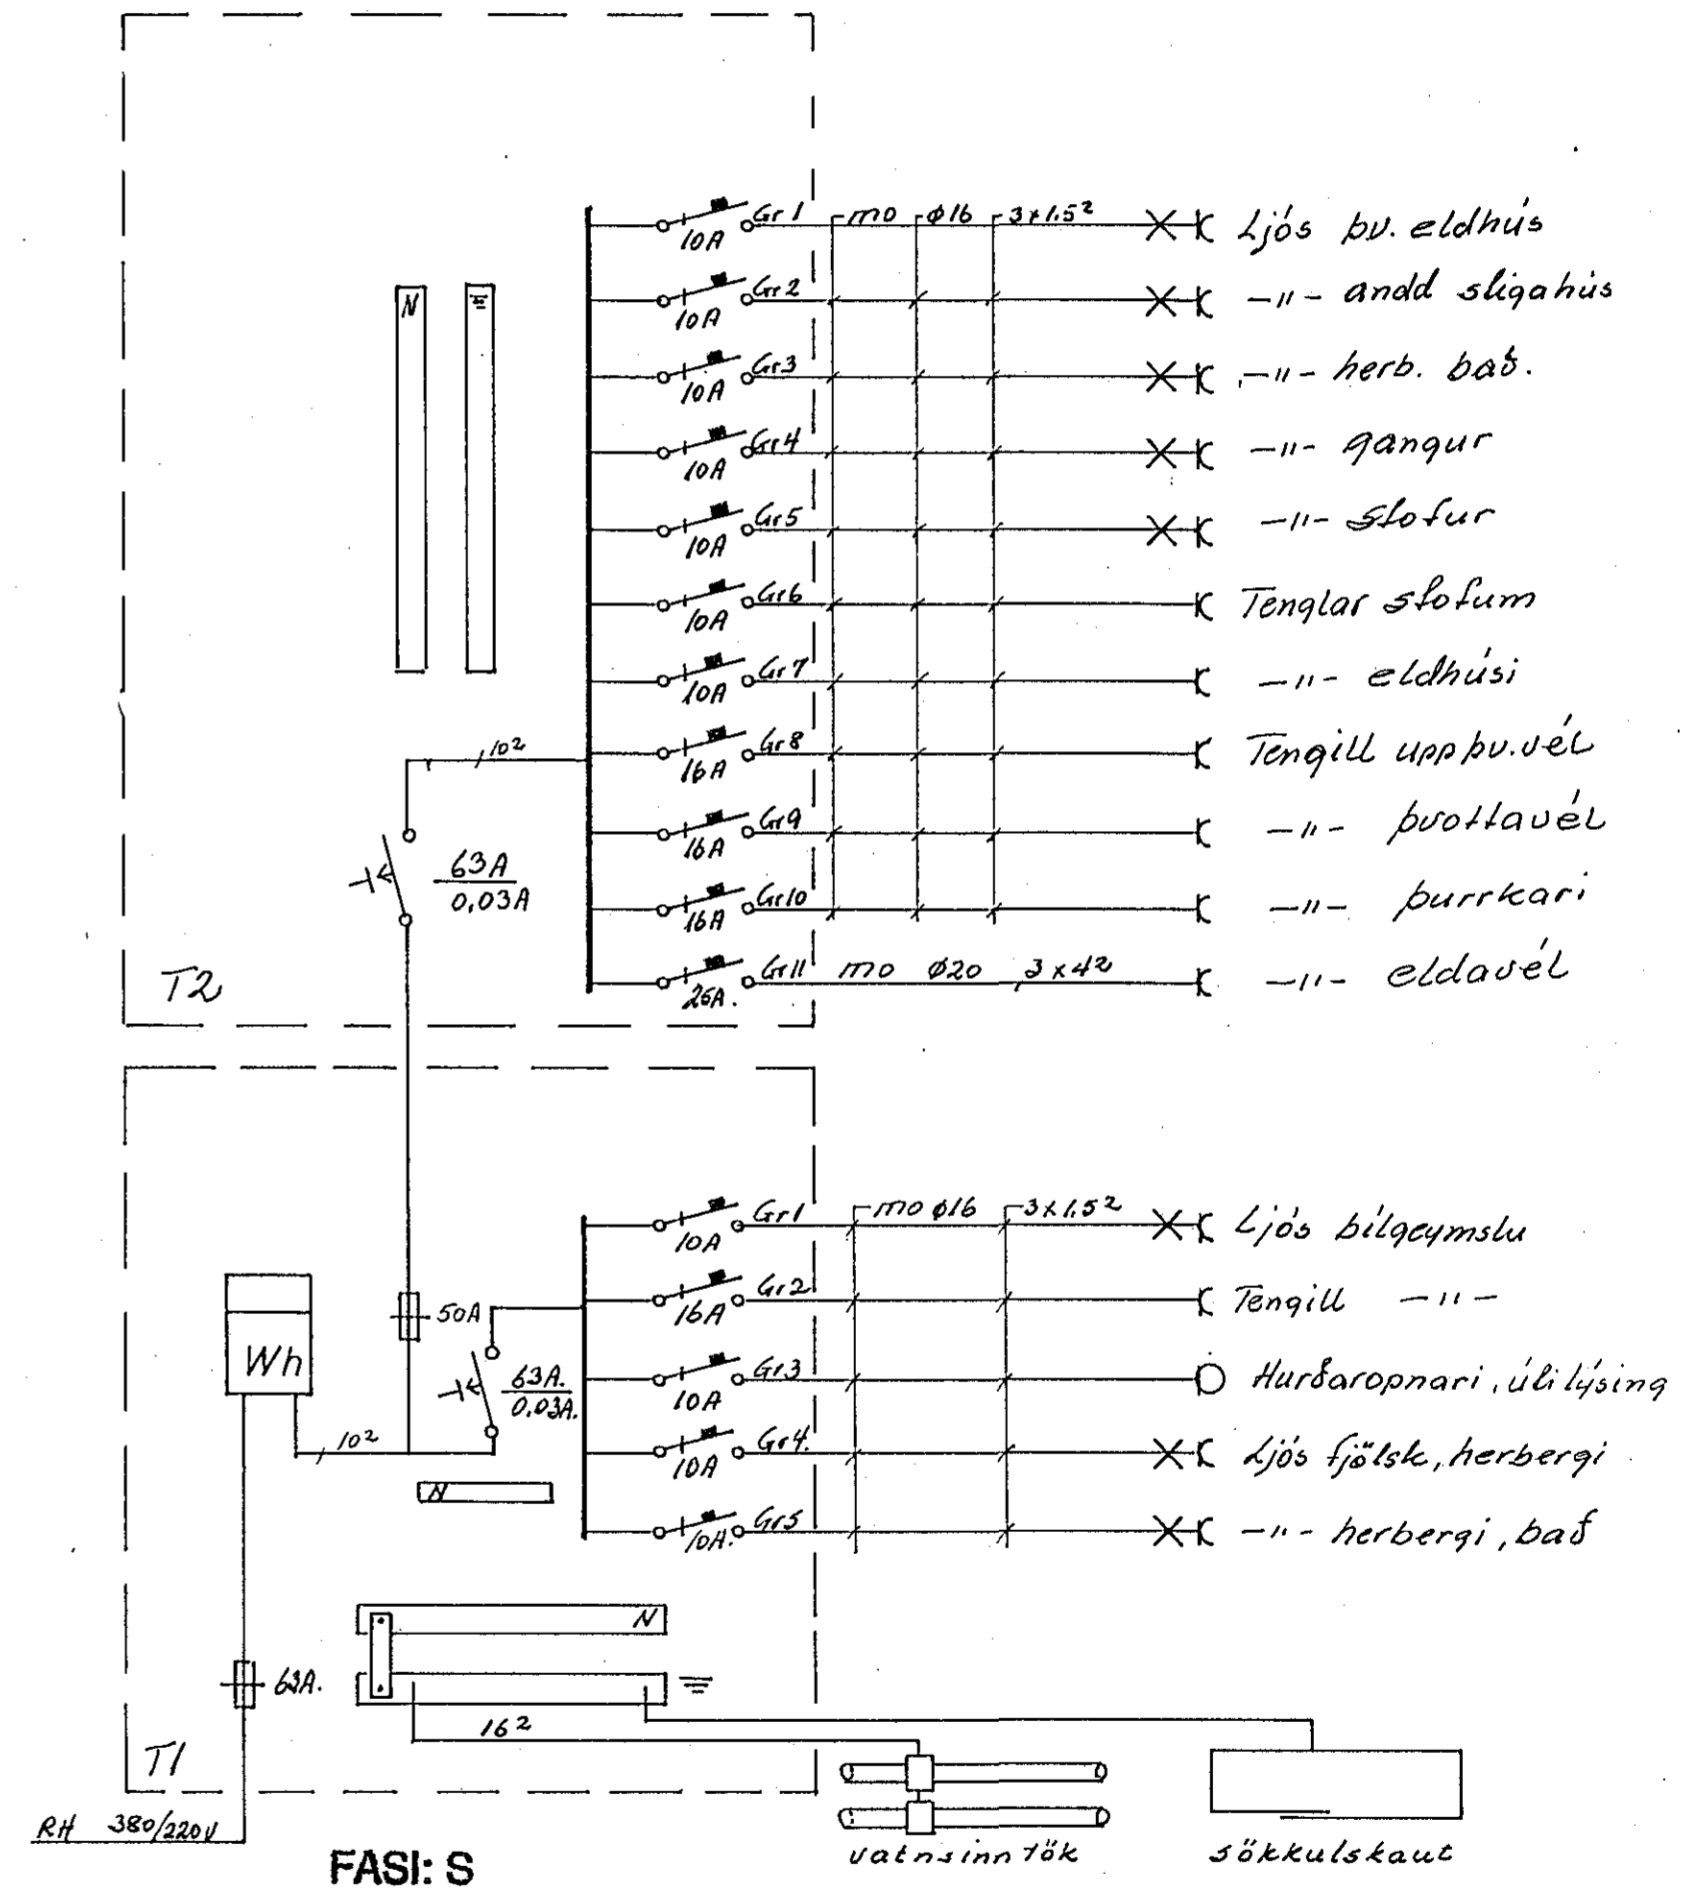 Gr1 mo ø16 3x1.5² Ljós þv. eldhús
10A
Gr2 -"- andd stigahús
10A
N
Gr3 -"- herb. bað.
10A
Gr4 -"- gangur
10A
Gr5 -"- stofur
10A
Gr6 Tenglar stofum
10A
Gr7 -"- eldhúsi
10A
10² Gr8 Tengill uppþv.vél
16A
Gr9 -"- þvottavél
16A
63A
0,03A
Gr10 -"- þurrkari
16A
T2 Gr11 mo ø20 3x4² -"- eldavél
25A.
Gr1 mo ø16 3x1.5² Ljós bílgeymslu
10A
Gr2 Tengill -"-
16A
50A
Wh
63A.
0.03A.
Gr3 Hurðaropnari, útilýsing
10A
10² Gr4. Ljós fjölsk, herbergi
10A
N
Gr5 -"- herbergi, bað
10A.
N
63A.
16²
T1
RH 380/220V
FASI: S
vatnsinntök
sökkulskaut